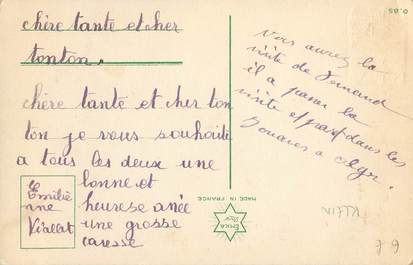 chère tante et cher
tonton.
chère tante et cher ton
ton je vous souhaite
a tous les deux une
bonne et
heurese anée
une grosse
caresse
Emiliè
nne
Viallat
Vous aurez la
visite de Fernand
il a passer la
visite et part dans les
Douanes a Alger.
MADE IN FRANCE
ERIKA
0.85